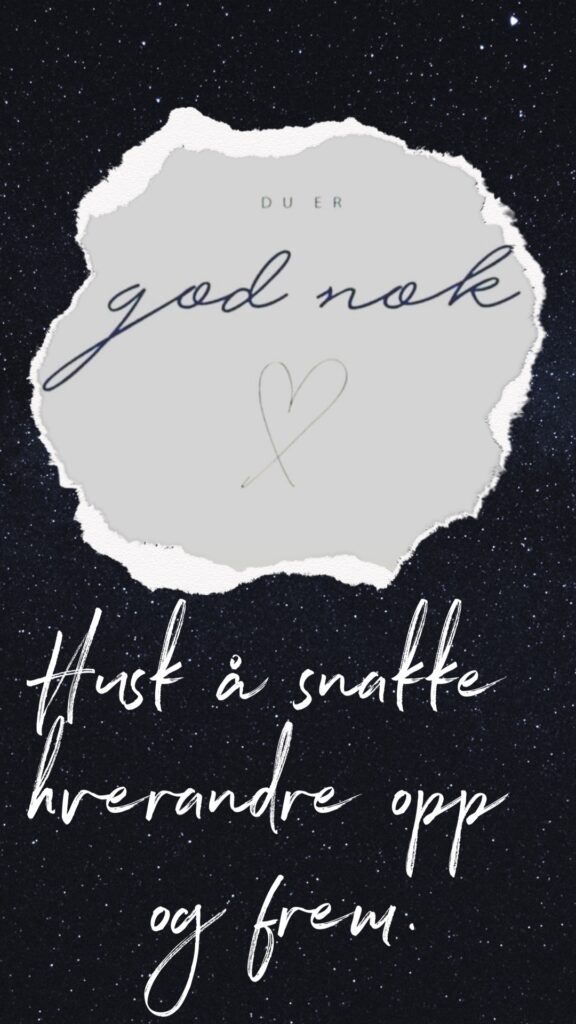 DU ER
god nok
Husk å snakke
hverandre opp
og frem.